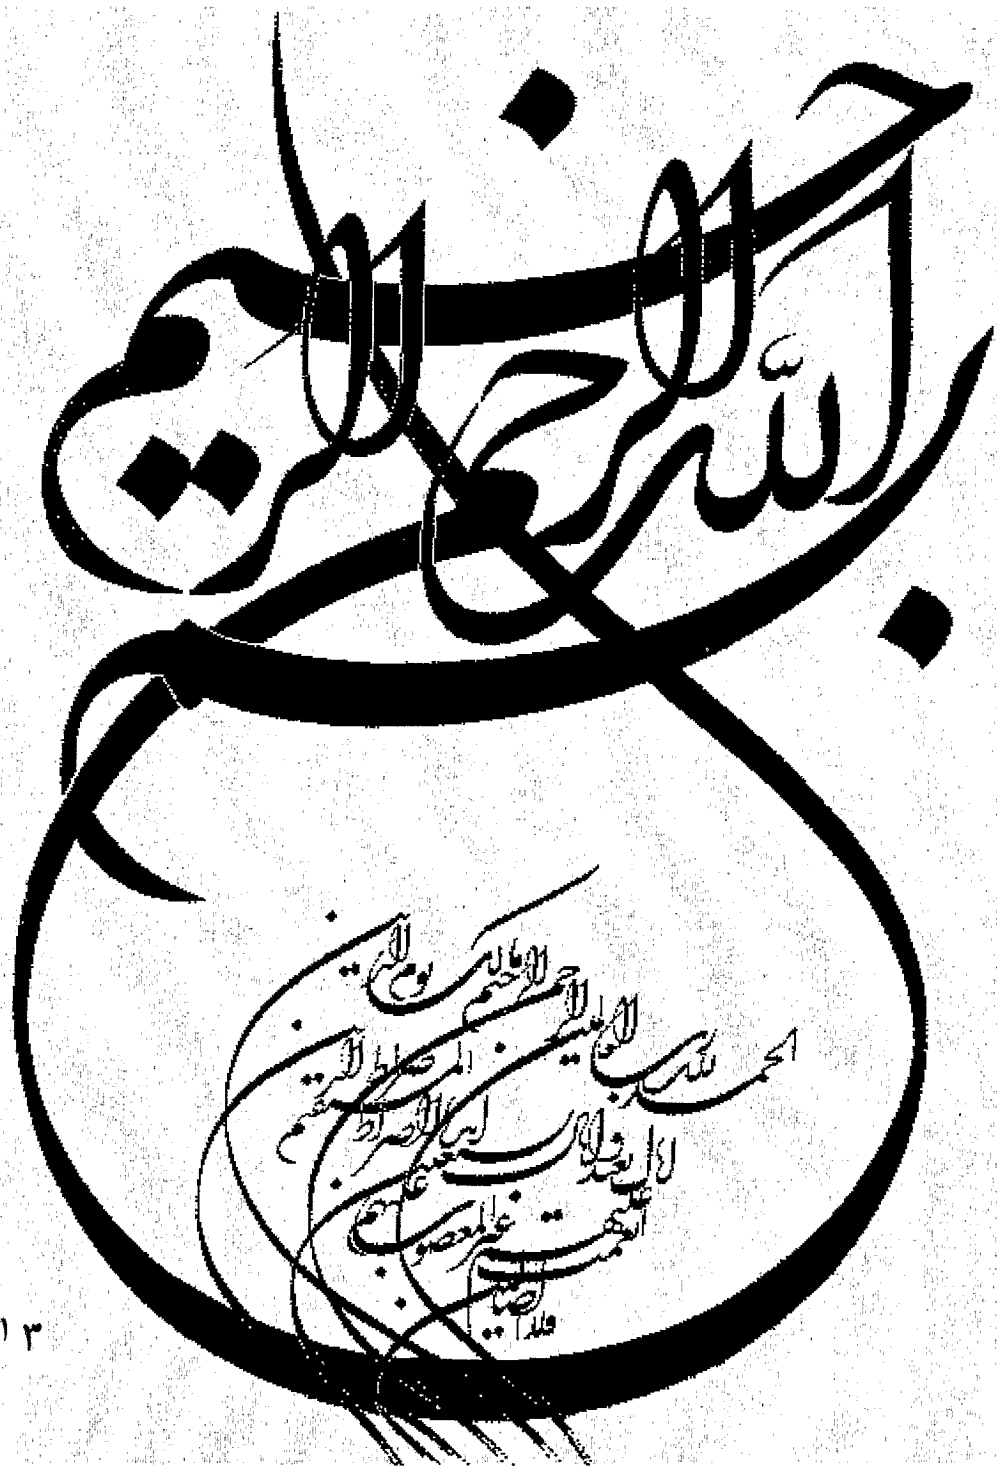 بسم الله الرحمن الرحیم
الحمد لله رب العالمین الرحمن الرحیم مالک یوم الدین
ایاک نعبد و ایاک نستعین اهدنا الصراط المستقیم صراط الذین
انعمت علیهم غیر المغضوب علیهم
و لا الضالین
۱۳